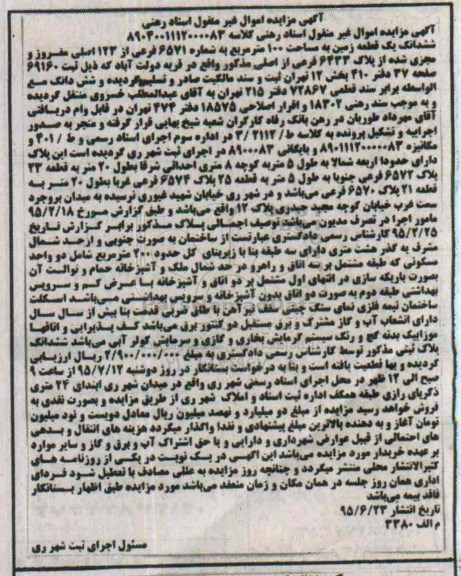 آگهی مزایده اموال غیر منقول اسناد رهنی
آگهی مزایده اموال غیر منقول اسناد رهنی کلاسه ۸۹۰۴۰۰۱۱۱۲۰۰۰۰۸۳
ششدانگ یک قطعه زمین به مساحت ۱۰۰ مترمربع به شماره ۶۵۷۱ فرعی از ۱۲۳ اصلی مفروز و
مجزی شده از پلاک ۶۴۳۳ فرعی از اصلی مذکور واقع در قریه دولت آباد که ذیل ثبت ۶۹۱۶۰
صفحه ۳۷ دفتر ۴۱۰ بخش ۱۲ تهران ثبت و سند مالکیت صادر و تسلیم گردیده و شش دانگ مع
الواسطه برابر سند قطعی ۷۲۸۶۷ دفتر ۲۱۵ تهران به آقای عبدالمطلب خسروی منتقل گردیده
و به موجب سند رهنی ۱۸۳۰۲ و اقرار اصلاحی ۱۸۵۷۵ دفتر ۴۷۴ تهران در قابل وام دریافتی
آقای مهرداد طوریان در رهن بانک رفاه کارگران شعبه شیخ بهایی قرار گرفته و منجر به صدور
اجراییه و تشکیل پرونده به کلاسه ط/۲۱۱۲/۳ در اداره سوم اجرای اسناد رسمی و ط/۳۰۱ و
مکانیزه ۸۹۰۱۱۱۲۰۰۰۰۰۸۳ و بایگانی ۸۹۰۰۰۸۳ در اجرای ثبت شهر ری گردیده است این پلاک
دارای حدودا اربعه شمالا به طول ۵ متر به کوچه ۸ متری احداثی شرقا بطول ۲۰ متر به قطعه ۲۳
پلاک ۶۵۷۲ فرعی جنوبا به طول ۵ متر به قطعه ۲۵ پلاک ۶۵۷۴ فرعی غربا بطول ۲۰ متر به
قطعه ۲۱ پلاک ۶۵۷۰ فرعی میباشد و در شهر ری خیابان شهید غیوری نرسیده به میدان بروجرد
سمت غرب خیابان کوچه مجید حیدری پلاک ۱۲ واقع میباشد و طبق گزارش مورخ ۹۵/۲/۱۸
مامور اجرا در تصرف مدیون میباشد توصیف اجمالی پلاک مذکور برابر گزارش تاریخ
۹۵/۲/۲۵ کارشناس رسمی دادگستری عبارتست از ساختمان به صورت جنوبی و از حد شمال
مشرف به گذر هشت متری دارای سه طبقه بنا با زیربنای کل حدود ۲۰۰ مترمربع شامل دو واحد
مسکونی که طبقه مشتمل بر سه اتاق و راهرو در حد شمال ملک و آشپزخانه حمام و توالت آن
بصورت باریکه سازی در انتهای اول مشتمل بر دو اتاق و آشپزخانه با عرض کم و سرویس
بهداشتی طبقه دوم به صورت دو اتاق بدون آشپزخانه و سرویس بهداشتی میباشد اسکلت
ساختمان نیمه فلزی نمای سنگ چینی سقف تیر آهن با طاق ضربی قدمت بنا بیش از سال سال
دارای انشعاب آب و گاز مشترک و برق مستقیل دو کنتور برق میباشد کف پذیرایی و اتاقها
موزاییک بدنه گچ و رنگ سیستم گرمایش بخاری و گازی و سرمایش کولر آبی میباشد ششدانگ
پلاک ثبتی مذکور توسط کارشناس رسمی دادگستری به مبلغ ۲/۹۰۰/۰۰۰/۰۰۰ ریال ارزیابی
گردیده و بها قطعیت یافته است و بنا به درخواست بستانکار در روز دوشنبه ۹۵/۷/۱۲ از ساعت ۹
صبح الی ۱۲ ظهر در محل اجرای اسناد رسمی شهر ری واقع در میدان شهر ری ابتدای ۲۴ متری
ذکریای رازی طبقه همکف اداره ثبت اسناد و املاک شهر ری از طریق مزایده و بصورت نقدی به
فروش خواهد رسید مزایده از مبلغ دو میلیارد و نهصد میلیون ریال معادل دویست و نود میلیون
تومان آغاز و به دهنده بالاترین مبلغ پیشنهادی و نقدا واگذار میگردد هزینه های انتقال و بدهی
های احتمالی از قبیل عوارض شهرداری و دارایی و یا حق اشتراک آب و برق و گاز و سایر موارد
بر عهده خریدار مورد مزایده می باشد این آگهی در یک نوبت در یکی از روزنامه های
کثیرالانتشار محلی منتشر میگردد و چنانچه روز مزایده به عللی مصادف با تعطیل شود فردای
اداری همان روز جلسه در همان مکان و زمان منعقد میباشد مورد مزایده طبق اظهار بستانکار
فاقد بیمه میباشد
تاریخ انتشار ۹۵/۶/۲۳
م الف ۳۳۸۰
مسئول اجرای ثبت شهر ری